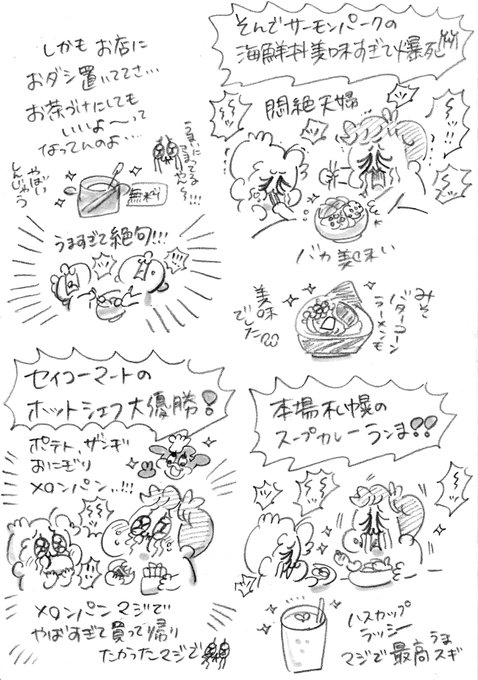 そんでサーモンパークの
海鮮料美味すぎて爆死
悶絶夫婦
バカ美味い
みそ
バターコーン
ラーメンモ
美味
でした
しかも お店に
おダシ置いててさ…
お茶づけにしても
いいよ〜って
なってんのよ…
無料
やばい
しんじゃう
うますぎて絶句!!!
本場札幌の
スープカレーうんま!!
ハスカップ
ラッシー
マジで最高うま
スギ
セイコーマートの
ホットシェフ大優勝!
ポテト、ザンギ
おにぎり
メロンパン..!!!
メロンパンマジで
やばすぎて買って帰り
たかったマジで